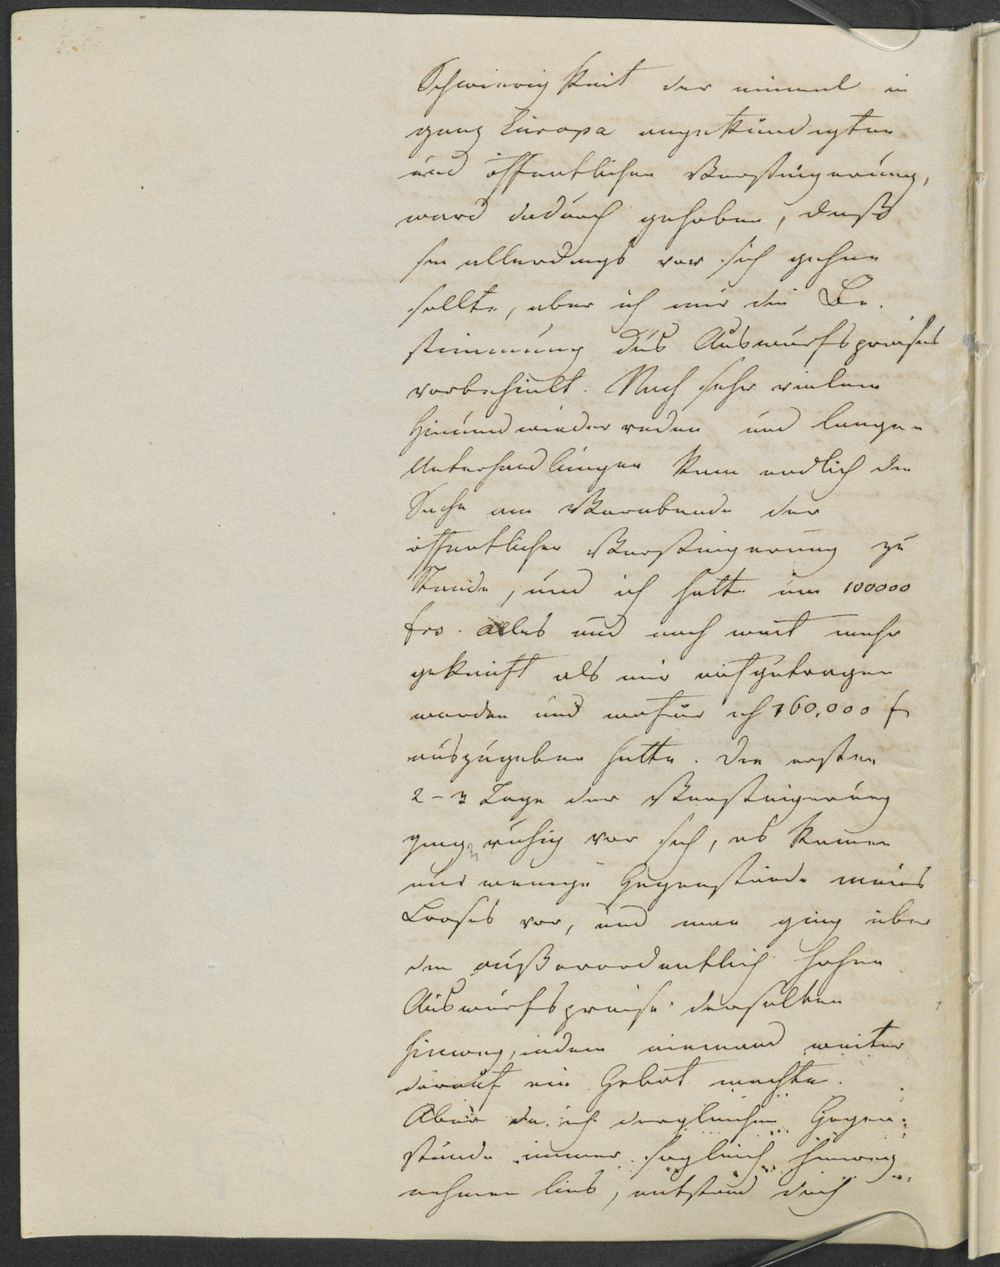 Schwierigkeit der einmal in
ganz Europa angekündigten
und öffentlichen Versteigerung,
ward dadurch gehoben, daß
sie allerdings vor sich gehen
sollte, aber ich mir die Be-
stimmung des Auswurfspreises
vorbehielt. Nach sehr vielem
Hinundwiederreden und langen
Unterhandlungen kam endlich die
Sache am Vorabende der
öffentlichen Versteigerung zu
Stande, und ich hatte um 100000
frs. alles und noch weit mehr
gekauft als mir aufgetragen
worden und wofür ich 160,000 f
auszugeben hatte. Die ersten
2-3 Tage der Versteigerung
ging ruhig vor sich, es kamen
nur wenige Gegenstände meines
Looses vor, und man ging über
den außerordentlich hohen
Auswurfspreise derselben
hinweg, indem niemand weiter
darauf ein Gebot machte.
Aber da ich dergleichen Gegen-
stände immer sogleich hinweg
nehmen ließ, entstand doch